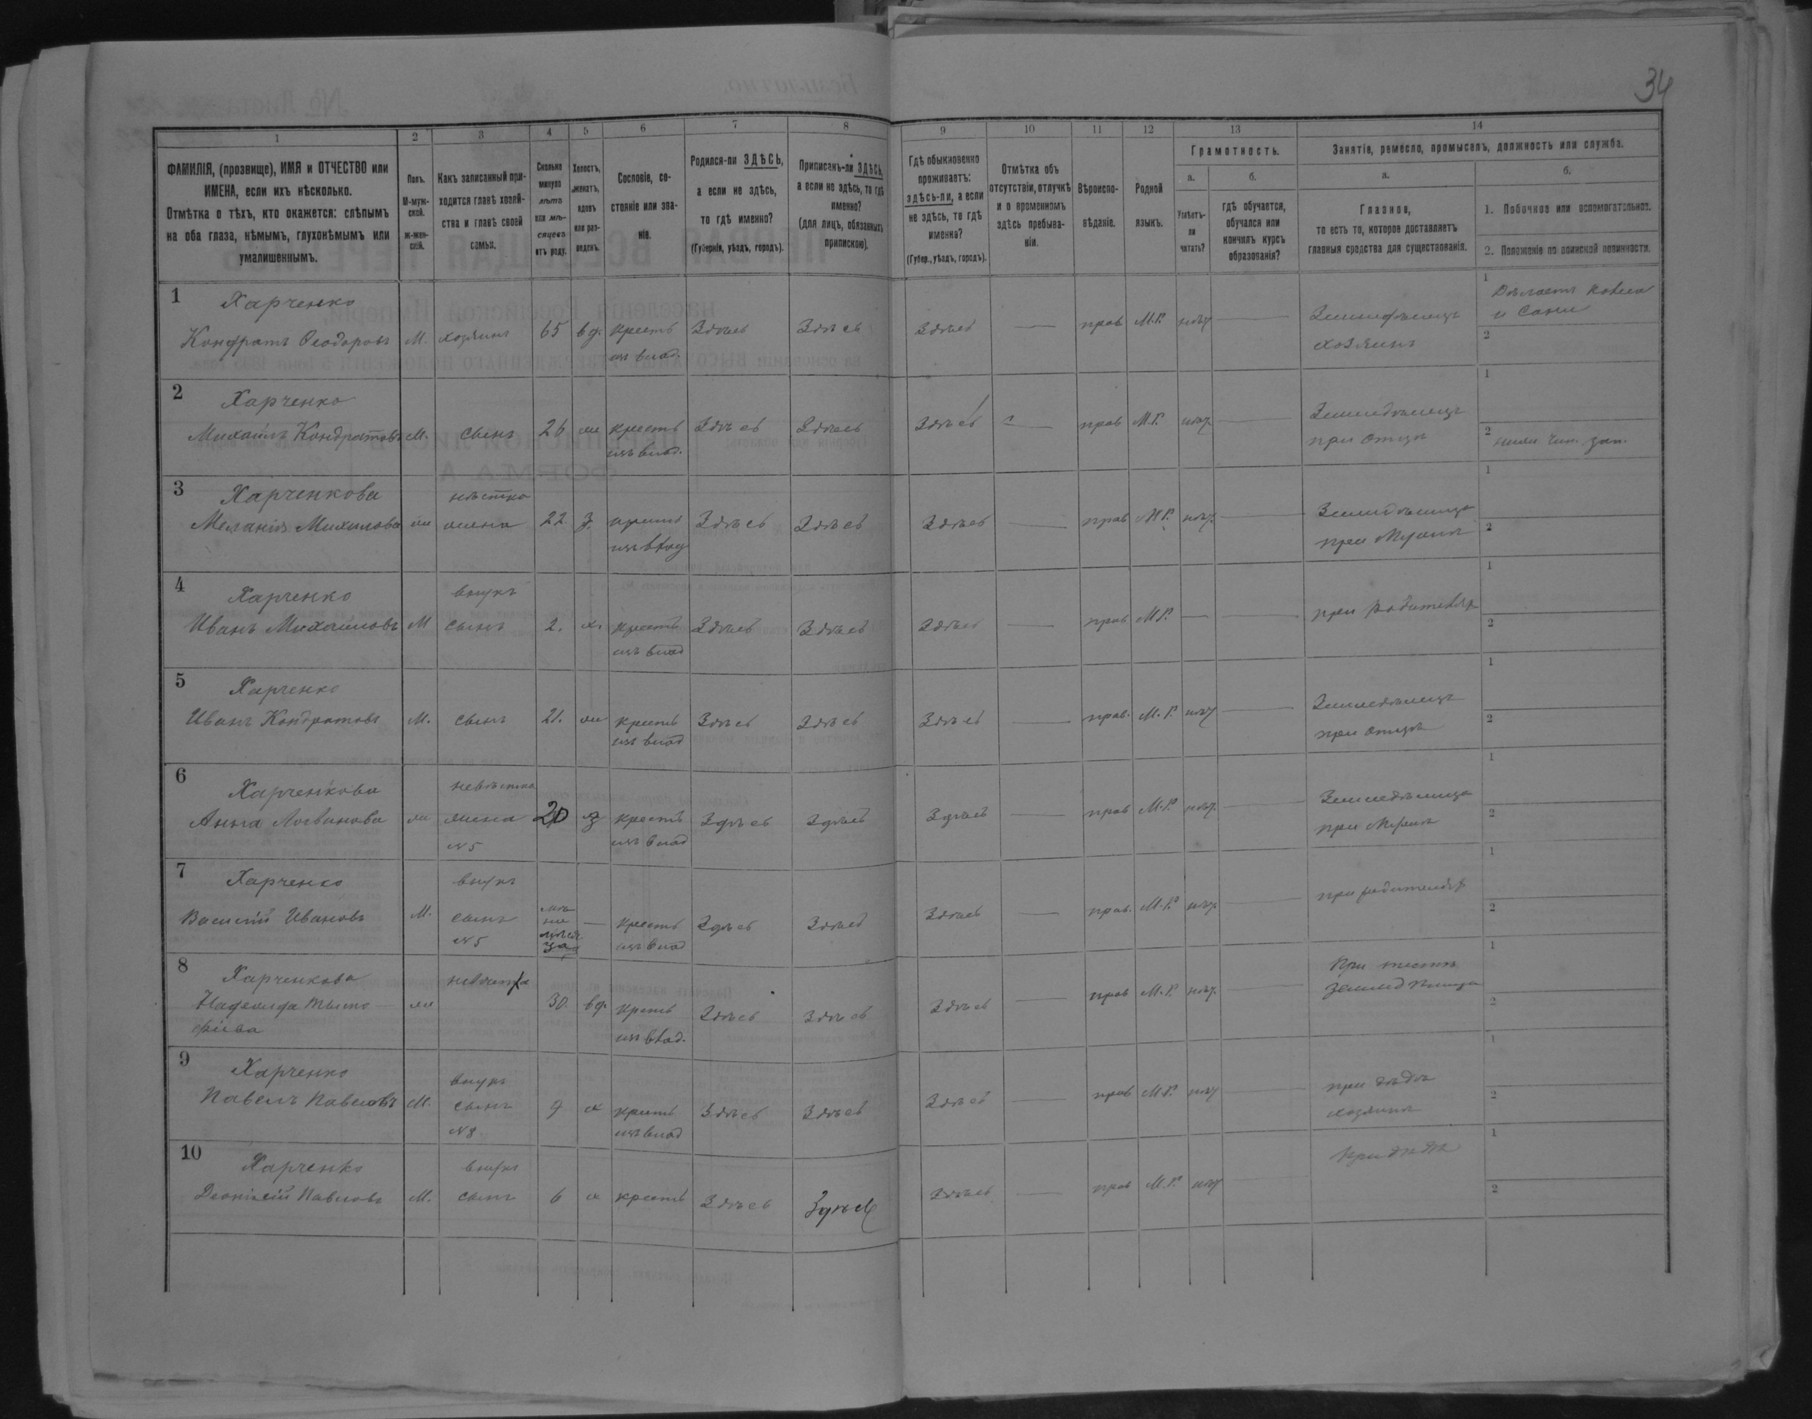 34
1 2 3 4 5 6 7 8 9 10 11 12 13 14
ФАМИЛІЯ, (прозвище), ИМЯ и ОТЧЕСТВО или
ИМЕНА, если ихъ нѣсколько.
Отмѣтка о тѣхъ, кто окажется: слѣпымъ
на оба глаза, нѣмымъ, глухонѣмымъ или
умалишеннымъ.
Полъ.
М-муж-
ской.
ж-жен-
скій.
Какъ записанный при-
ходится главѣ хозяй-
ства и главѣ своей
семьи.
Сколько
минуло
лѣтъ
или мѣ-
сяцевъ
отъ роду.
Холостъ,
женатъ,
вдовъ
или раз-
веденъ.
Сословіе, со-
стояніе или зва-
ніе.
Родился-ли ЗДѢСЬ,
а если не здѣсь,
то гдѣ именно?
(Губернія, уѣздъ, городъ).
Приписанъ-ли ЗДѢСЬ,
а если не здѣсь, то гдѣ
именно?
(для лицъ, обязанныхъ
припискою).
Гдѣ обыкновенно
проживаетъ:
здѣсь-ли, а если
не здѣсь, то гдѣ
именно?
(Губер., уѣздъ, городъ).
Отмѣтка объ
отсутствіи, отлучкѣ
и о временномъ
здѣсь пребыва-
ніи.
Вѣроиспо-
вѣданіе.
Родной
языкъ.
Грамотность.
а.
Умѣетъ-
ли
читать?
б.
гдѣ обучается,
обучался или
кончилъ курсъ
образованія?
Занятіе, ремесло, промыселъ, должность или служба.
а.
Главное,
то есть то, которое доставляетъ
главныя средства для существованія.
б.
1. Побочное или вспомогательное.
2. Положеніе по воинской повинности.
1 Харченко
Кондратъ Ѳеодоровъ М. хозяинъ 65 вд. крестъ Здѣсь Здѣсь Здѣсь — прав М.Р. нѣт — Земледѣлецъ
изъ влад. хозяинъ
1 Дѣлаетъ колеса
и сани
2
2 Харченко
Михаилъ Кондратовъ М. сынъ 26 ж крестъ Здѣсь Здѣсь Здѣсь прав М.Р. нѣт — Земледѣлецъ
изъ влад. при отцѣ
1
2
3 Харченкова
Меланія ж жена 22 з. Здѣсь Здѣсь Здѣсь — прав М.Р. нѣт —
изъ влад при мужѣ
1
2
4 Харченко внукъ
Иванъ Михайловъ М сынъ 2. х. крестъ Здѣсь Здѣсь Здѣсь — прав М.Р. — — при родителяхъ
изъ влад
1
2
5 Харченко
Иванъ Кондратовъ М. сынъ 21. ж крестъ Здѣсь Здѣсь Здѣсь — прав. М.Р. нѣт — Земледѣлецъ
изъ влад при отцѣ
1
2
6 Харченкова невѣстка
Анна ж жена з крестъ Здѣсь Здѣсь Здѣсь — прав М.Р. нѣт —
№5 изъ влад при мужѣ
1
2
7 Харченко внукъ
Василій Ивановъ М. сынъ — крестъ Здѣсь Здѣсь Здѣсь — прав. М.Р. нѣт — при родителяхъ
№5 изъ влад
1
2
8 Харченкова невѣстка
Надежда Тимо- ж 30. вд. крестъ Здѣсь Здѣсь Здѣсь — прав М.Р. нѣт —
фіева изъ влад.
1
2
9 Харченко внукъ
Павелъ Павловъ М. сынъ 9 х крестъ Здѣсь Здѣсь Здѣсь — прав М.Р. нѣт — при дѣдѣ
№8 изъ влад хозяинѣ
1
2
10 Харченко внукъ
Павловъ М. сынъ 6 х крестъ Здѣсь Здѣсь Здѣсь — прав М.Р. нѣт — При дѣдѣ
1
2